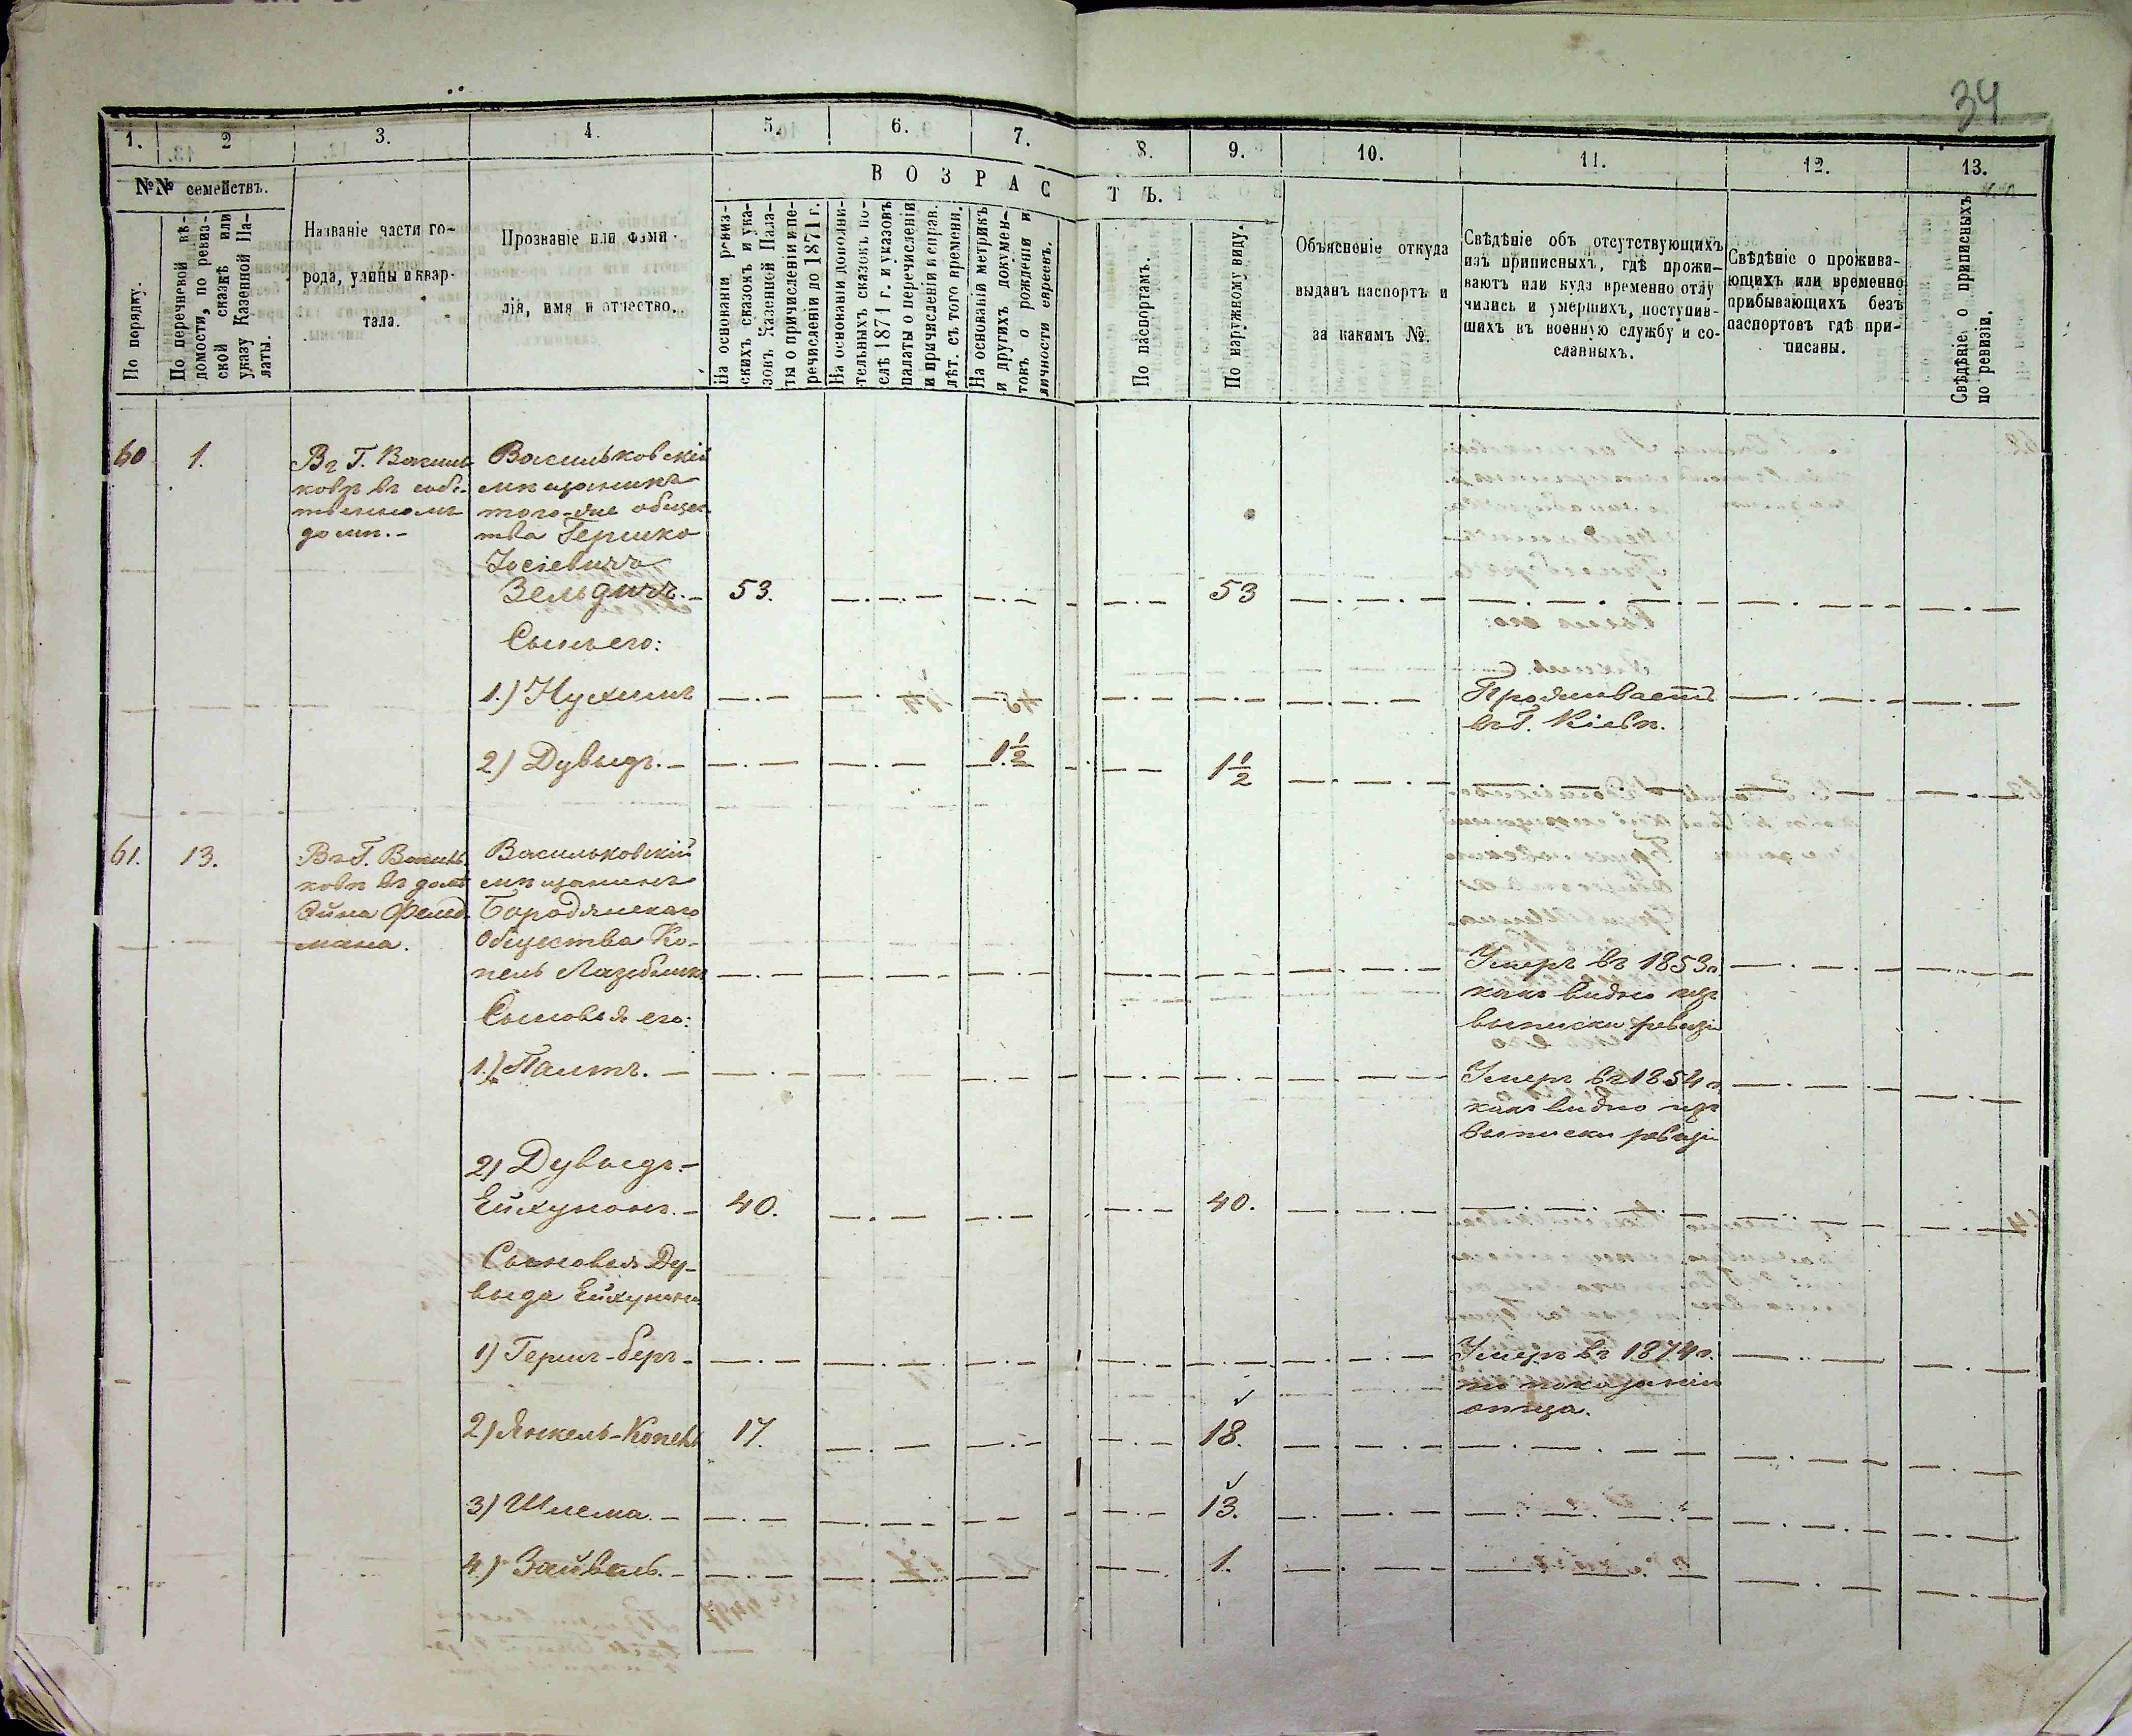 34
1. 2 3. 4. 5. 6. 7. 8. 9. 10. 11. 12. 13.
№№ семействъ.
В О З Р А С Т Ъ.
По порядку.
По перечневой вѣ-
домости, по ревиз-
ской сказкѣ или
указу Казенной Па-
латы.
Названіе части го-
рода, улицы и квар-
тала.
Прозваніе или фами-
лія, имя и отчество.
На основаніи ревиз-
скихъ сказокъ и ука-
зовъ Казенной Пала-
ты о причисленіи и пе-
речисленіи до 1871 г.
На основаніи дополни-
тельныхъ сказокъ по-
слѣ 1871 г. и указовъ
палаты о перечисленіи
и причисленіи и справ.
лѣт. съ того времени.
На основаніи метрикъ
и другихъ докумен-
товъ о рожденіи и
личности евреевъ.
По паспортамъ.
По наружному виду.
Объясненіе откуда
выданъ паспортъ и
за какимъ №.
Свѣдѣніе объ отсутствующихъ
изъ приписныхъ, гдѣ прожи-
ваютъ или куда временно отлу
чились и умершихъ, поступив-
шихъ въ военную службу и со-
сланныхъ.
Свѣдѣніе о прожива-
ющихъ или временно
прибывающихъ безъ
паспортовъ гдѣ при-
писаны.
Свѣдѣніе о приписныхъ
по ревизіи.
60 1.
Въ Г. Василь
ковѣ въ собс-
твенномъ
домѣ.-
Васильковскій
мѣщанинъ
того-же общес
тва Гершко
Іосіевичъ
Зельдичъ.- 53. 53
Сынъ его:
1.) Нухимъ Проживаетъ
въ Г. Кіевѣ.
2) Дувыдъ.- 1½ 1½
61. 13.
Въ Г. Василь
ковѣ въ домѣ
Фельд
мана.
Васильковскій
мѣщанинъ
Бородянскаго
Общества Ко-
пель Умеръ въ 1853 г.
какъ видно изъ
выписки ревизіи
Сыновья его:
1.) Умеръ въ 1854 г
какъ видно изъ
выписки ревизіи
2) Дувыдъ-
Ейхунонъ.- 40. 40.
Сыновья Ду-
выда Ейхунона
1) Гершъ-беръ- Умеръ въ 1874 г.
по показанію
отца.
2) Янкель-Копель 17. 18.
3) Шлема.- 13.
4.) Зайвель.- 1.